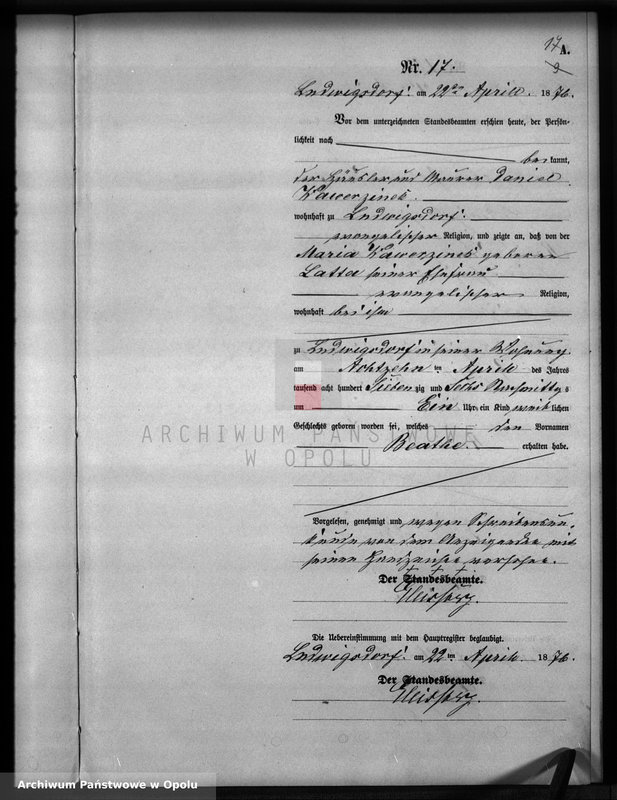 17 A.
Nr. 17.
Ludwigsdorf am 22ten April 1876.
Vor dem unterzeichneten Standesbeamten erschien heute, der Persön-
lichkeit nach
bekannt,
der Häusler und Maurer Daniel
Kawerzinek
wohnhaft zu Ludwigsdorf
evangelischer Religion, und zeigte an, daß von der
Maria Kawerzinek geborene
Latta seiner Ehefrau
evangelischer Religion,
wohnhaft bei ihm
zu Ludwigsdorf in seiner Wohnung
am Achtzehn ten April des Jahres
tausend acht hundert Sieben zig und Sechs Nachmittags
um Ein Uhr ein Kind weiblichen
Geschlechts geboren worden sei, welches den Vornamen
Beathe erhalten habe.
ARCHIWUM PAŃSTWOWE
W OPOLU
Vorgelesen, genehmigt und wegen Schreibensun-
kunde von dem Anzeigenden mit
seinen Handzeichen versehen.
+ + +
Der Standesbeamte.
Die Uebereinstimmung mit dem Hauptregister beglaubigt.
Ludwigsdorf am 22ten April 1876.
Der Standesbeamte.
Archiwum Państwowe w Opolu